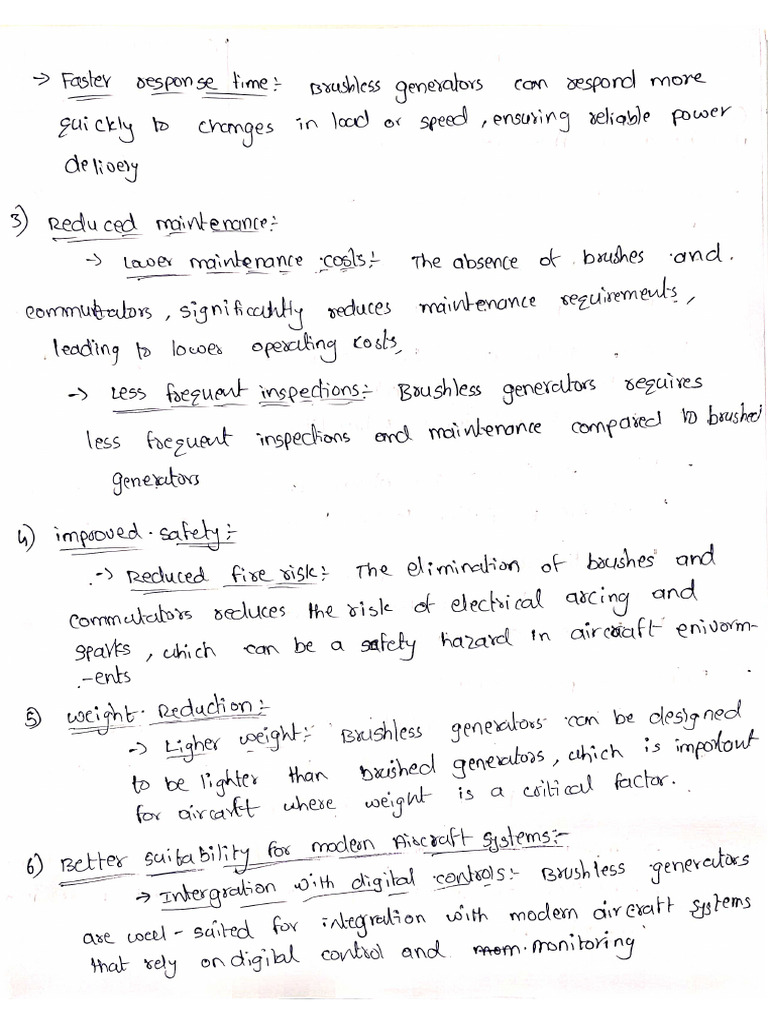 → Faster response time:- Brushless generators can respond more
quickly to changes in load or speed, ensuring reliable power
delivery
3) Reduced maintenance:-
→ Lower maintenance costs:- The absence of brushes and
commutators, significantly reduces maintenance requirements,
leading to lower operating costs.
→ Less frequent inspections:- Brushless generators requires
less frequent inspections and maintenance compared to brushed
generators
4) improved safety:-
→ Reduced fire risk:- The elimination of brushes and
commutators reduces the risk of electrical arcing and
sparks, which can be a safety hazard in aircraft enivorm-
-ents
5) Weight Reduction:-
→ Ligher weight:- Brushless generators can be designed
to be lighter than brushed generators, which is important
for aircarft where weight is a critical factor.
6) Better suitability for modern Aircraft systems:-
→ Intergration with digital controls:- Brushless generators
are well-suited for integration with modern aircraft systems
that rely on digital control and monitoring